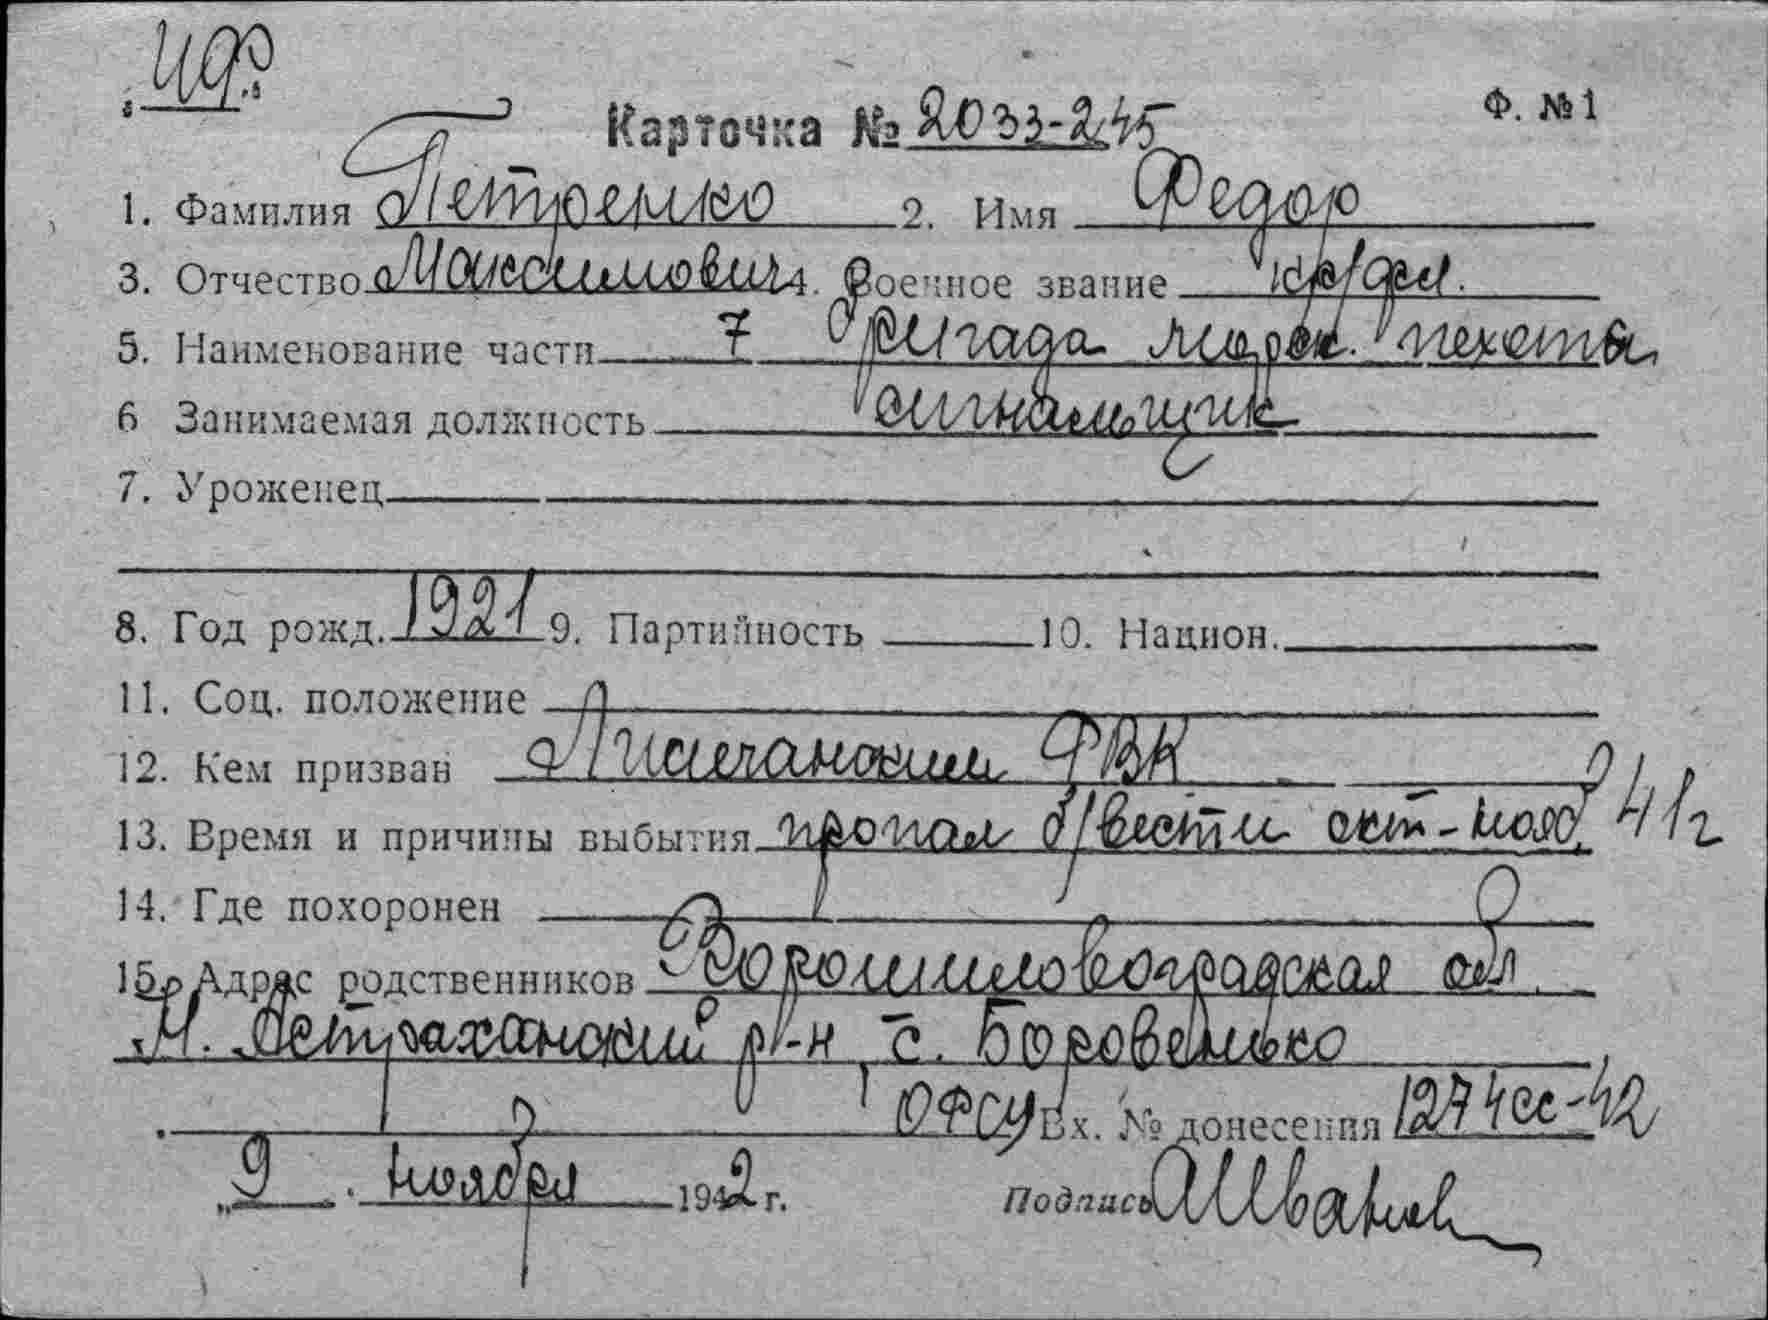 Ф. №1
Карточка № 2033-245
1. Фамилия Петренко 2. Имя Федор
3. Отчество Максимович 4. Военное звание кр/фл.
5. Наименование части 7 бригада морск. пехоты
6 Занимаемая должность сигнальщик
7. Уроженец
8. Год рожд. 1921 9. Партийность 10. Национ.
11. Соц. положение
12. Кем призван Лисичанским РВК
13. Время и причины выбытия пропал б/вести окт-нояб. 41г
14. Где похоронен
15. Адрес родственников Ворошиловоградская обл.
Н. Астраханский р-н с. Боровенько
Вх. № донесения 1274сс-42
„9 . ноября 1942 г. Подпись